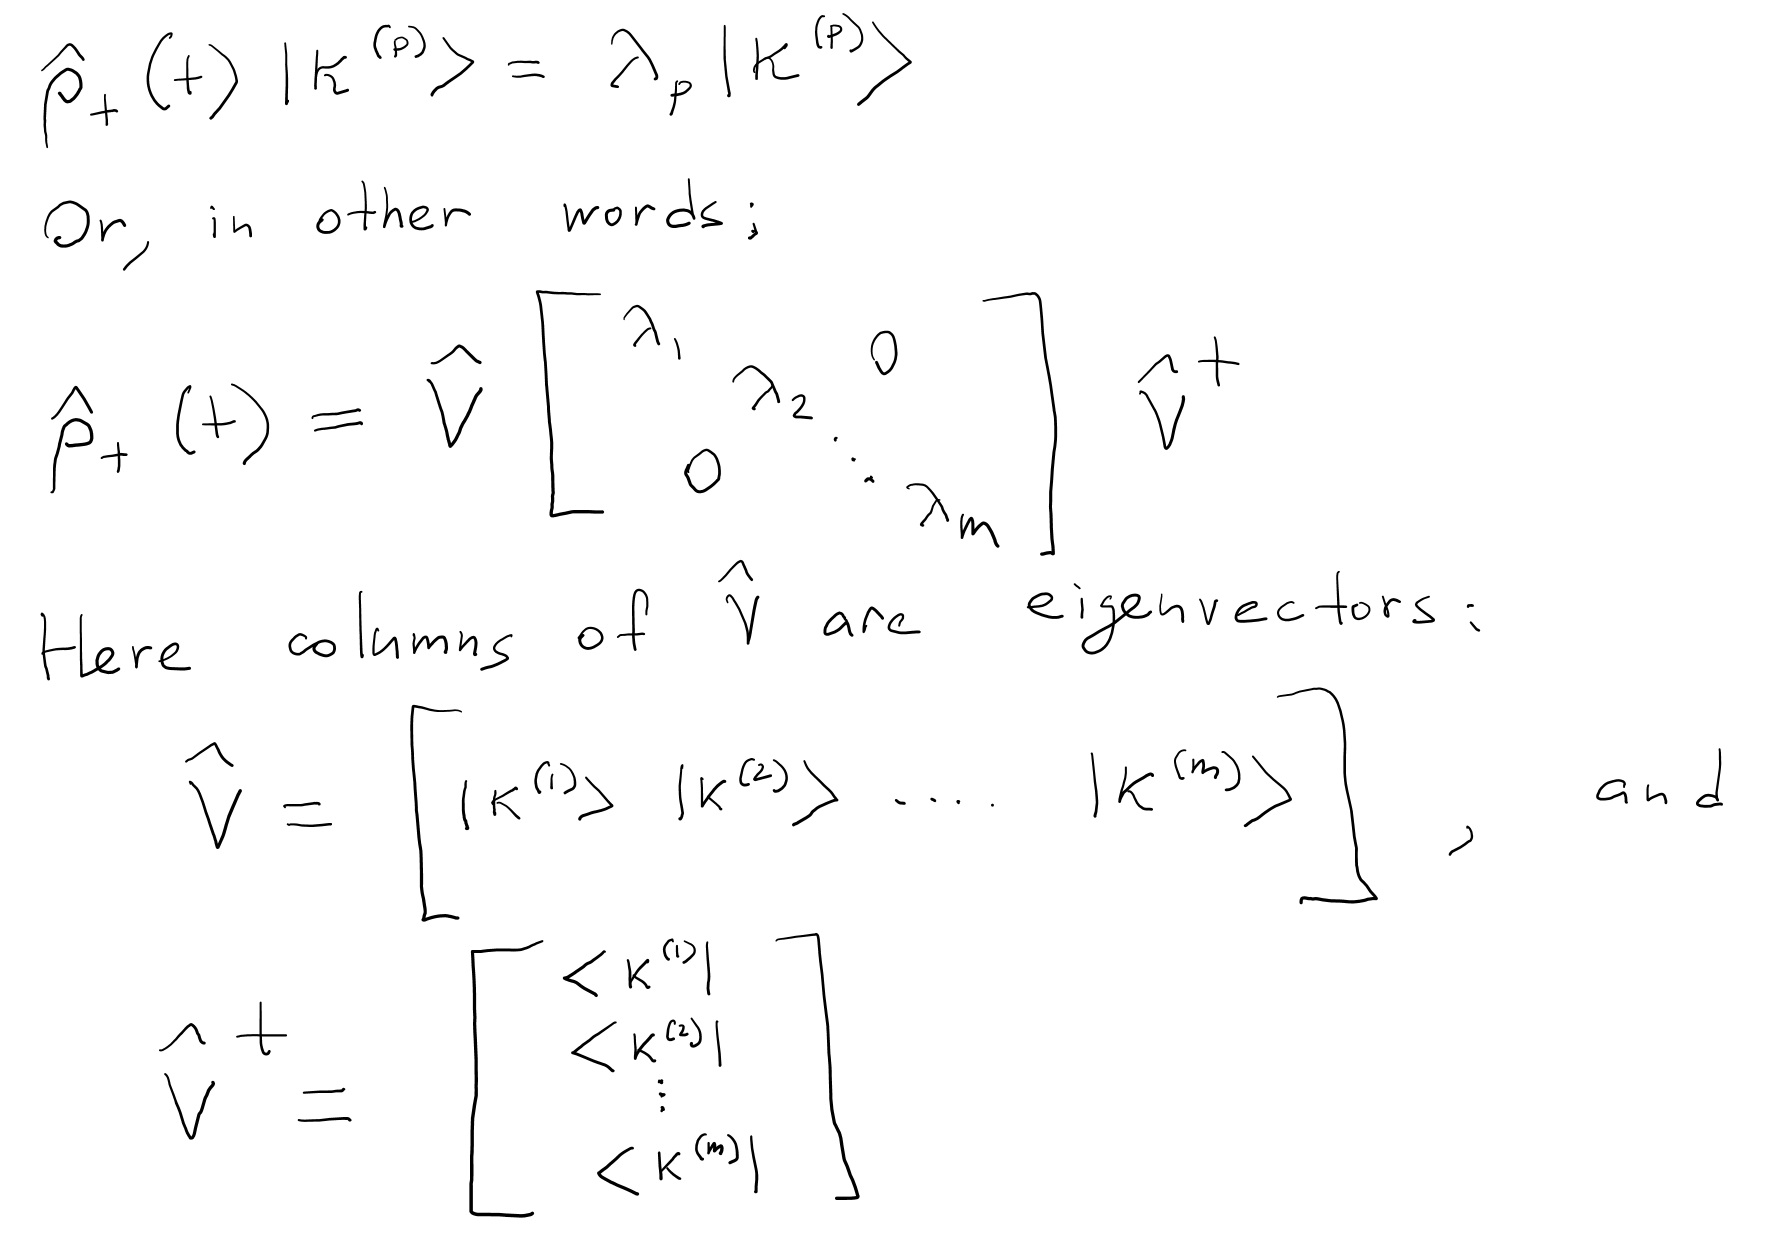 ρ̂₊(t) |K⁽ᵖ⁾⟩ = λₚ |K⁽ᵖ⁾⟩
Or, in other words;
ρ̂₊(t) = V̂ [ λ₁ λ₂ ⋱ λₘ 0 0 ] V̂†
Here columns of V̂ are eigenvectors:
V̂ = [ |K⁽¹⁾⟩ |K⁽²⁾⟩ .... |K⁽ᵐ⁾⟩ ] , and
V̂† = [ <K⁽¹⁾|
<K⁽²⁾|
⋮
<K⁽ᵐ⁾| ]